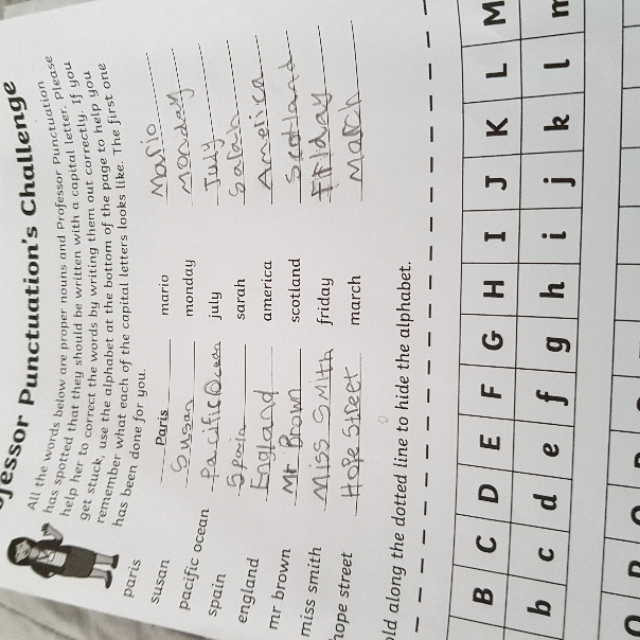 fessor Punctuation's Challenge
All the words below are proper nouns and Professor Punctuation
has spotted that they should be written with a capital letter. Please
help her to correct the words by writing them out correctly. If you
get stuck, use the alphabet at the bottom of the page to help you
remember what each of the capital letters looks like. The first one
has been done for you.
paris Paris mario Mario
susan Susan monday Monday
pacific ocean Pacific Ocean july July
spain Spain sarah Sarah
england England america America
mr brown Mr Brown scotland Scotland
miss smith Miss Smith friday Friday
hope street Hope Street march March
old along the dotted line to hide the alphabet.
B C D E F G H I J K L M
b c d e f g h i j k l m